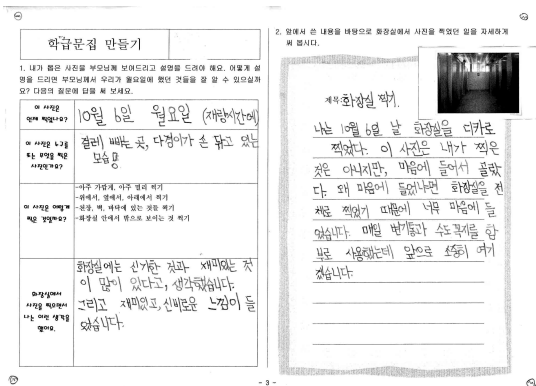 학급문집 만들기
1. 내가 뽑은 사진을 부모님께 보여드리고 설명을 드려야 해요. 어떻게 설
명을 드리면 부모님께서 우리가 월요일에 했던 것들을 잘 알 수 있으실까
요? 다음의 질문에 답을 써 보세요.
이 사진은
언제 찍었나요?
10월 6일 월요일 (재량시간에)
이 사진은 누구를
또는 무엇을 찍은
사진인가요?
걸레 빠는 곳, 다경이가 손 닦고 있는
모습 등
이 사진은 어떻게
찍은 것일까요?
-아주 가깝게, 아주 멀리 찍기
-위에서, 옆에서, 아래에서 찍기
-천장, 벽, 바닥에 있는 것들 찍기
-화장실 안에서 밖으로 보이는 것 찍기
화장실에서
사진을 찍으면서
나는 이런 생각을
했어요.
화장실에는 신기한 것과 재미있는 것
이 많이 있다고, 생각했습니다.
그리고 재미있고, 신비로운 느낌이 들
었습니다.
2. 앞에서 쓴 내용을 바탕으로 화장실에서 사진을 찍었던 일을 자세하게
써 봅시다.
제목: 화장실 찍기.
나는 10월 6일 날 화장실을 디카로
찍었다. 이 사진은 내가 찍은
것은 아니지만, 마음에 들어서 골랐
다. 왜 마음에 들었냐면 화장실을 전
체로 찍었기 때문에 너무 마음에 들
었습니다. 매일 변기통과 수도꼭지를 함
부로 사용했는데 앞으로 소중히 여기
겠습니다.
- 3 -